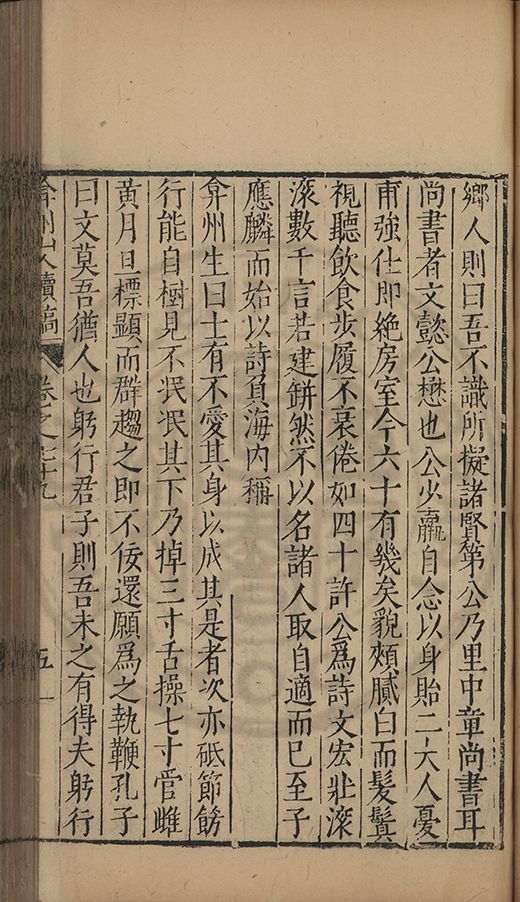 鄉人則曰吾不識所擬諸賢第公乃里中章尚書耳
尚書者文懿公懋也公少羸自念以身貽二大人憂
甫強仕即絶房室今六十有幾矣貌頰膩白而髮鬒
視聽飲食步履不衰倦如四十許公爲詩文宏壯滚
滚數千言若建缾然不以名諸人取自適而已至子
應麟而始以詩負海内稱
弇州生曰士有不愛其身以成其是者次亦砥節餝
行能自樹見不泯泯其下乃掉三寸舌操七寸管雌
黄月旦標顯而群趨之即不佞還願爲之執鞭孔子
曰文莫吾猶人也躬行君子則吾未之有得夫躬行
弇州山人續稿 卷之六十九 五